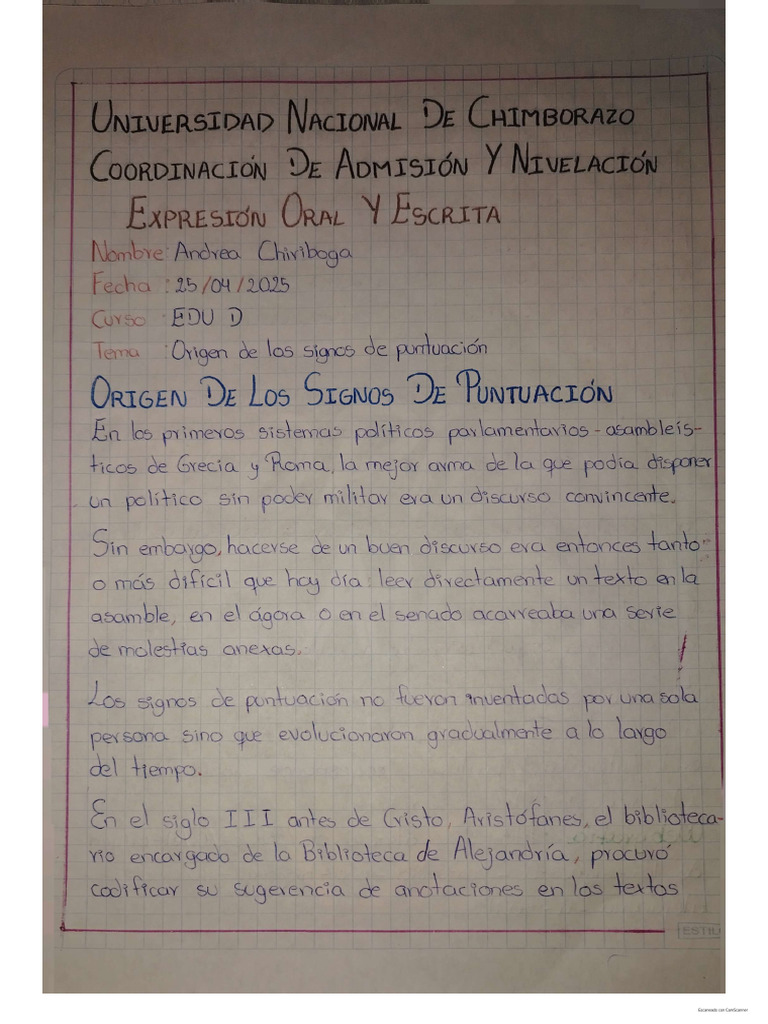 UNIVERSIDAD NACIONAL DE CHIMBORAZO
COORDINACIÓN DE ADMISIÓN Y NIVELACIÓN
EXPRESIÓN ORAL Y ESCRITA
Nombre: Andrea Chiriboga
Fecha : 25/04/2025
Curso : EDU D
Tema : Origen de los signos de puntuación
ORIGEN DE LOS SIGNOS DE PUNTUACIÓN
En los primeros sistemas políticos parlamentarios-asambleís-
ticos de Grecia y Roma, la mejor arma de la que podía disponer
un político sin poder militar era un discurso convincente.
Sin embargo, hacerse de un buen discurso era entonces tanto
o más difícil que hoy día: leer directamente un texto en la
asamble, en el ágora o en el senado acarreaba una serie
de molestias anexas.
Los signos de puntuación no fueron inventadas por una sola
persona sino que evolucionaron gradualmente a lo largo
del tiempo.
En el siglo III antes de Cristo, Aristófanes, el biblioteca-
rio encargado de la Biblioteca de Alejandría, procuró
codificar su sugerencia de anotaciones en los textos
ESTIL
Escaneado con CamScanner